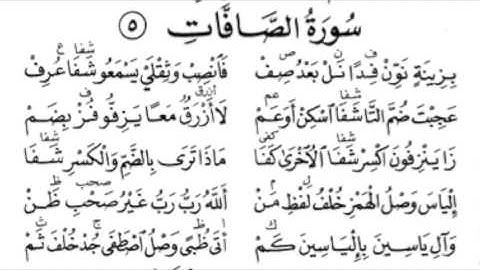 سُورَةُ الصَّافَّاتِ ٥
بِزِينَةٍ نَوِّنْ فِدًا نَلْ بَعْدُ صِفْ فَانْصِبْ وَثِقْلَيْ يَسْمَعُو شَفَا عُرِفْ
عَجِبْتَ ضُمَّ التَّا شَفَا اسْكِنْ أَوَ عَمْ لَا أَزْرَقٌ مَعًا يَزِفُّو فُزْ بِضَمْ
زَا يَنْزِفُونَ اكْسِرْ شَفَا الْأُخْرَى كَفَا مَاذَا تَرَى بِالضَّمِّ وَالْكَسْرِ شَفَا
إِلْيَاسَ وَصْلُ الْهَمْزِ خُلْفُ لَفْظِ مَنْ أَللهُ رَبُّ رَبُّ غَيْرُ صَحْبِ ظَنْ
وَآلِ يَاسِينَ بِإِلْيَاسِينَ كَمْ أَتَى ظُبًى وَصْلُ اصْطَفَى جُدْ خُلْفَ ثَمْ